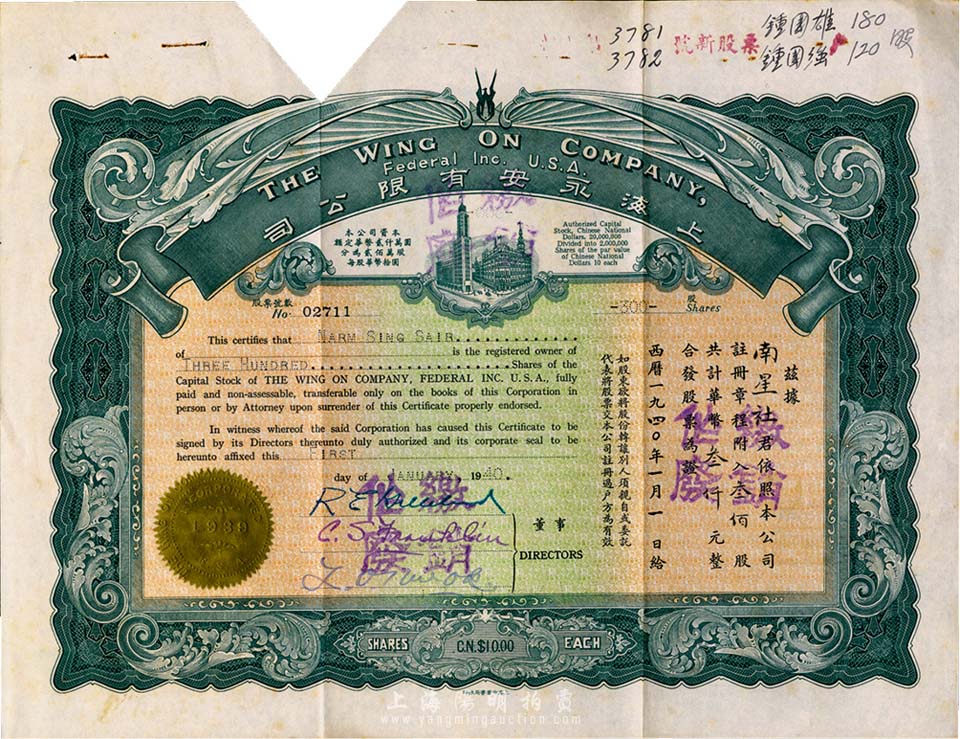 3781
3782
票股新號
鍾國雄 180
鍾國強 120 股
THE WING ON COMPANY,
Federal Inc. U.S.A.
司公限有安永海上
本公司資本
額定華幣貳仟萬圓
分為貳佰萬股
每股華幣拾圓
Authorized Capital
Stock, Chinese National
Dollars, 20,000,000
Divided into 2,000,000
Shares of the par value
of Chinese National
Dollars 10 each
股票號數
No. 02711
-300- 股
Shares
This certifies that NARM SING SAIR
of is the registered owner of
THREE HUNDRED Shares of the
Capital Stock of THE WING ON COMPANY, FEDERAL INC. U. S. A., fully
paid and non-assessable, transferable only on the books of this Corporation in
person or by Attorney upon surrender of this Certificate properly endorsed.
In witness whereof the said Corporation has caused this Certificate to be
signed by its Directors thereunto duly authorized and its corporate seal to be
hereunto affixed this FIRST
day of JANUARY 1940.
茲據
南星社君依照本公司
註冊章程附入叁佰股
共計華幣叁仟元整
合發股票為證
西曆一九四〇年一月一日給
如股東欲將股份轉讓別人須親自或委託
代表將股票交本公司註冊過戶方為有效
繳銷
作廢
繳銷
作廢
繳銷
作廢
1939
C. S. Franklin
董事
DIRECTORS
SHARES C.N.$10.00 EACH
上海陽明拍賣
www.yangmingauction.com